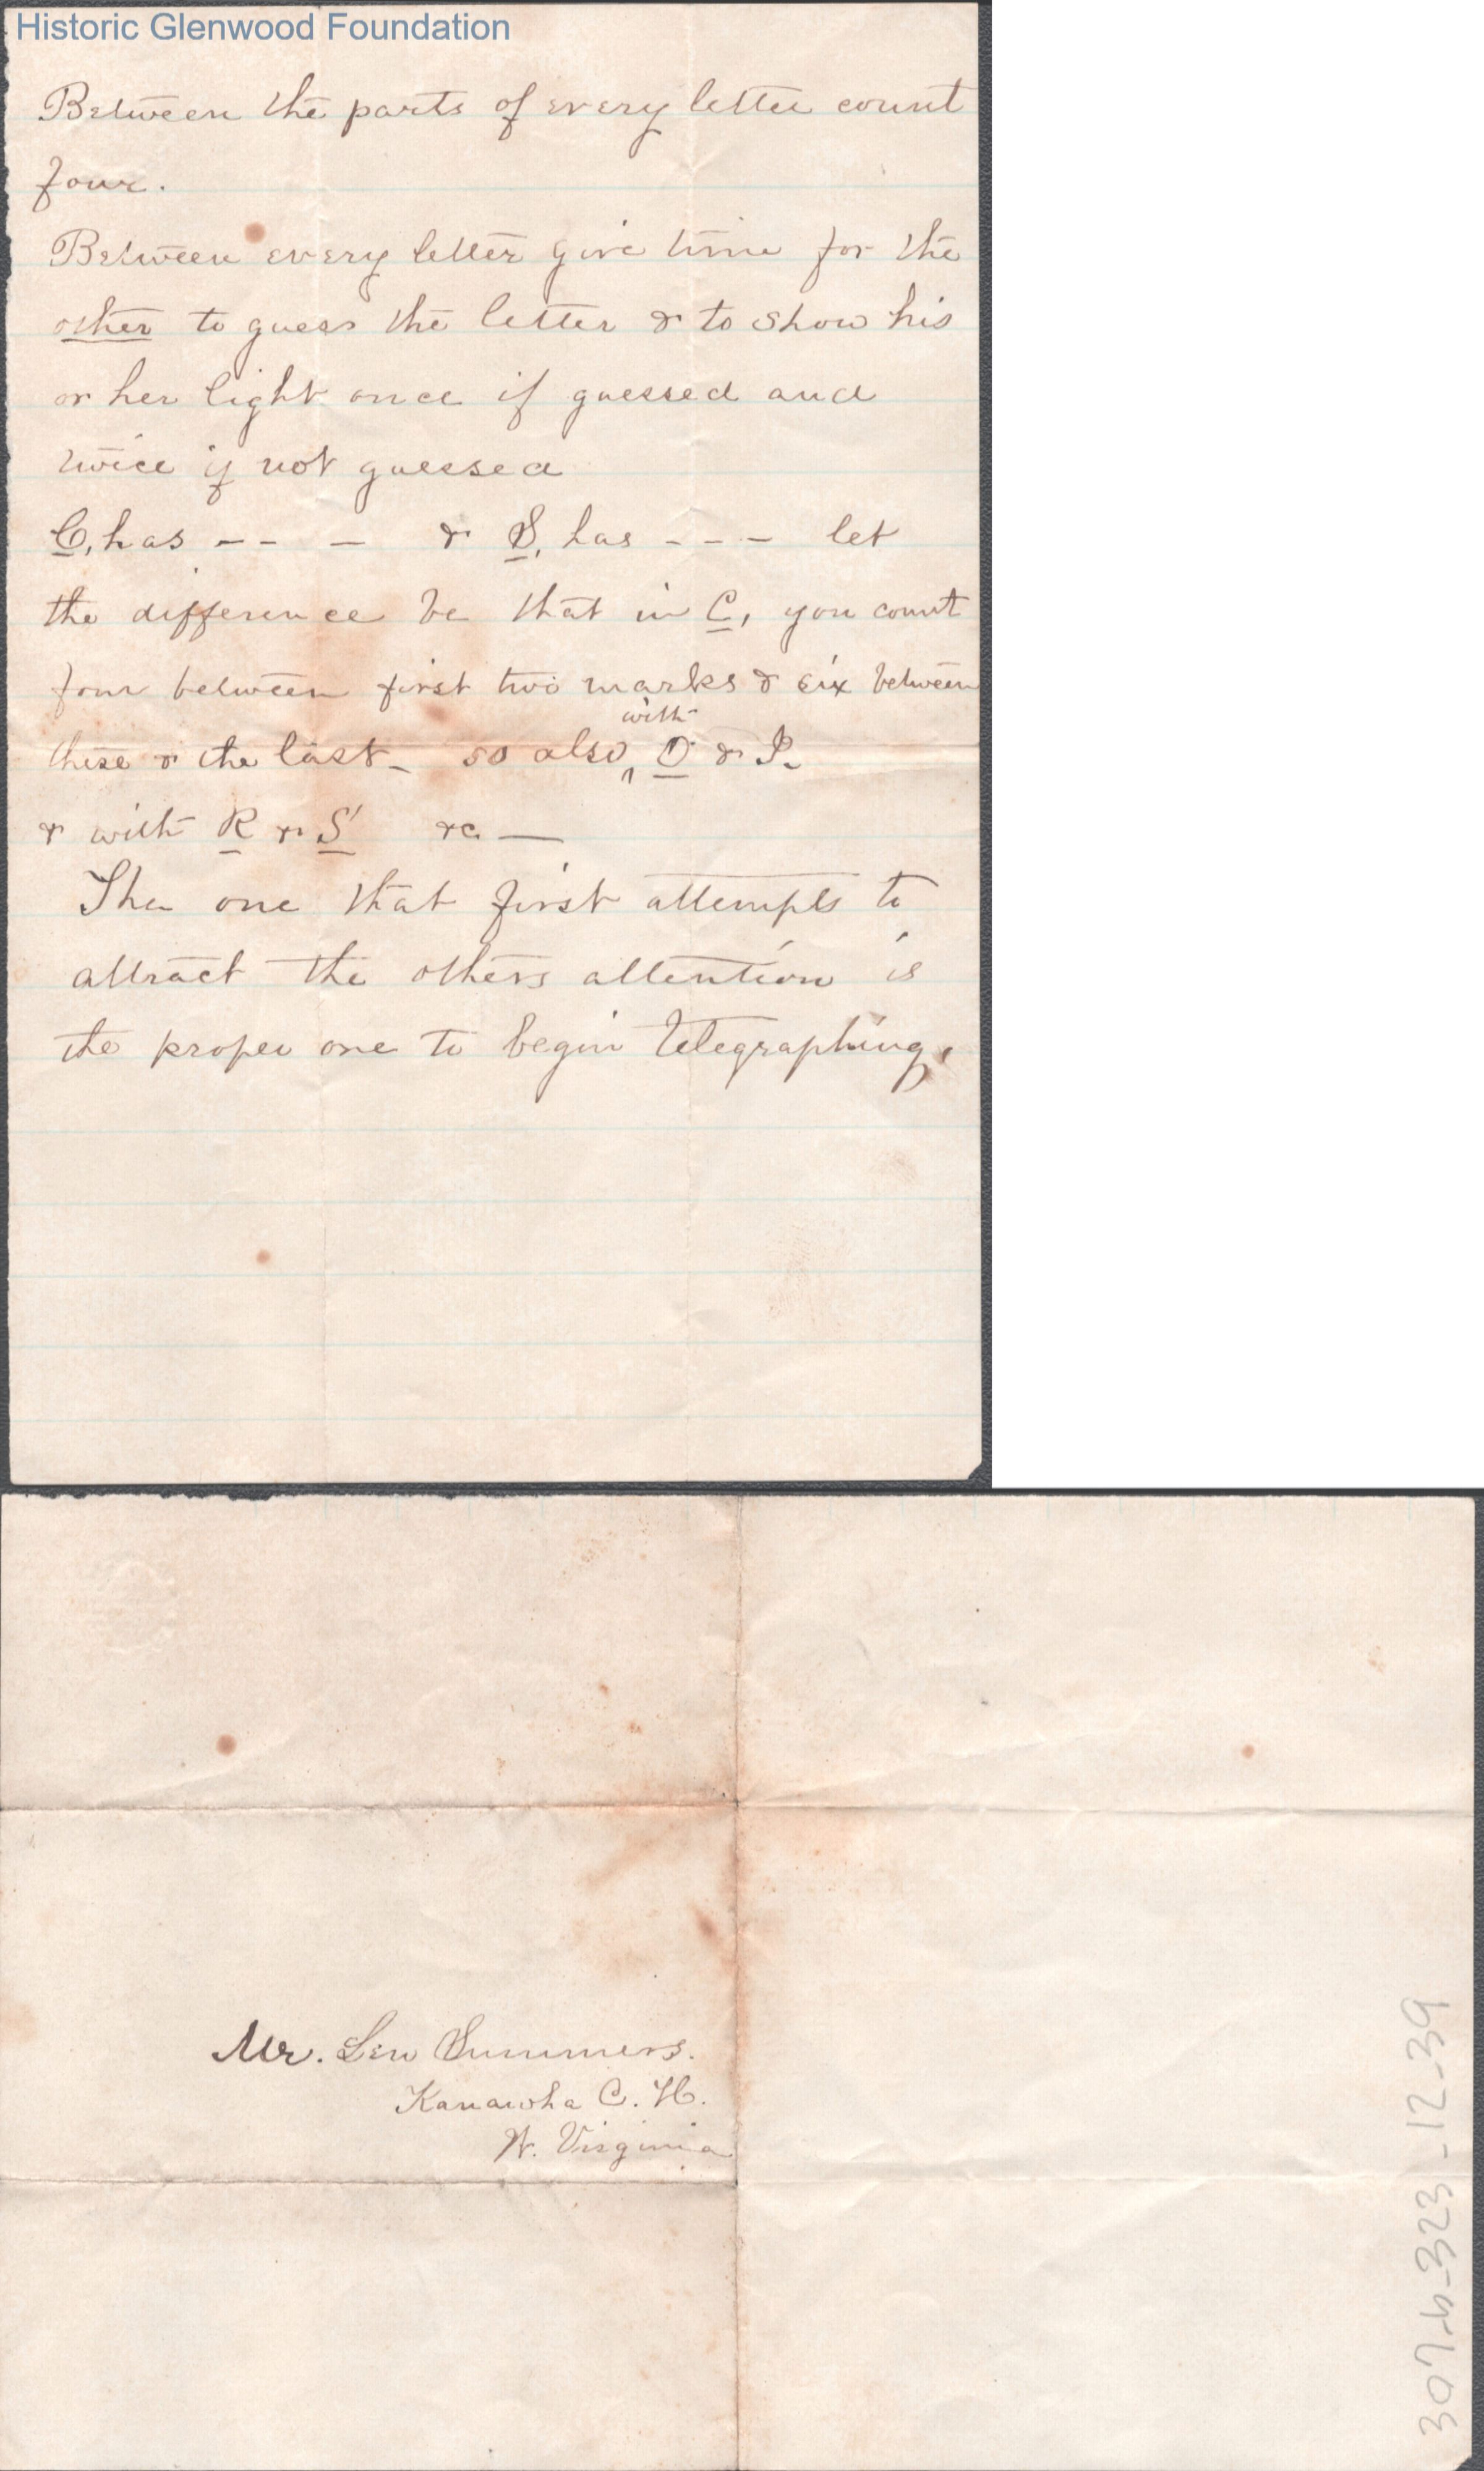 Historic Glenwood Foundation
Between the parts of every letter count
four.
Between every letter give time for the
other to guess the letter & to show his
or her light once if guessed and
twice if not guessed
C, has - - — & S, has - - - let
the difference be that in C, you count
four between first two marks & six between
these & the last - so also with O & I.
& with R & S &c —
The one that first attempts to
attract the others attention is
the proper one to begin telegraphing.
Mr. Lew Summers.
Kanawha C. H.
W. Virginia
307-b-323-12-39